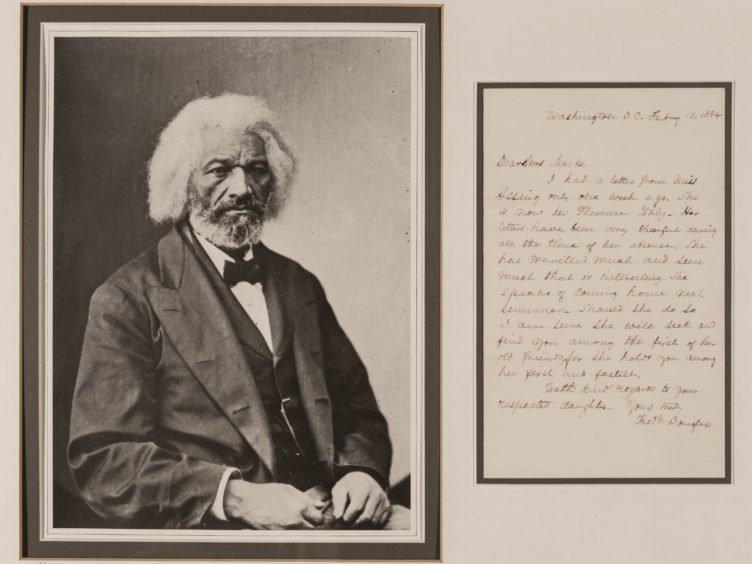 Washington D.C. Febry 13. 1884
Dear Mrs Marks
I had a letter from Miss
Assing only one week ago. She
is now in Florence Italy - Her
letters have been very cheerful during
all the time of her absence. She
has travelled much and seen
much that is interesting She
speaks of coming home next
summer. Should she do so
I am sure she will seek and
find you among the first of her
old friends for she holds you among
her first and fastest.
With kind regards to your
respected daughter - Yours truly
Fredk Douglass